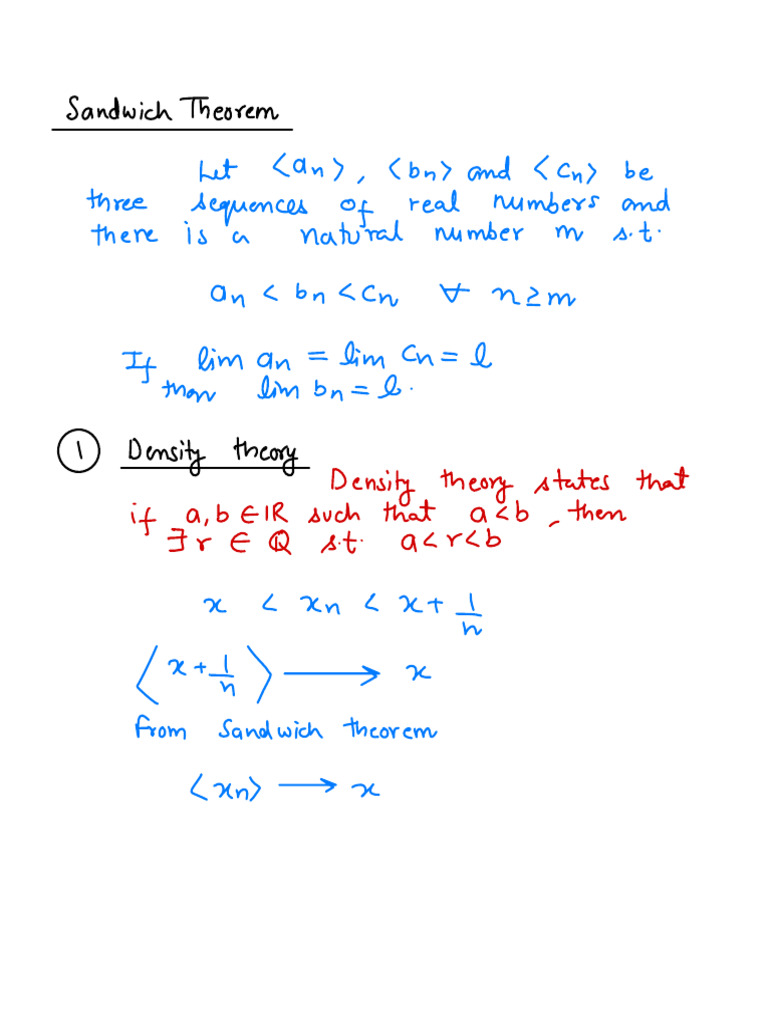 Sandwich Theorem
Let <an>, <bn> and <cn> be
three sequences of real numbers and
there is a natural number m s.t.
an < bn < cn ∀ n ≥ m
If lim an = lim cn = l
then lim bn = l.
① Density theory
Density theory states that
if a, b ∈ ℝ such that a < b, then
∃ r ∈ ℚ s.t. a < r < b
x < xn < x + 1/n
<x + 1/n> ⟶ x
from Sandwich theorem
<xn> ⟶ x